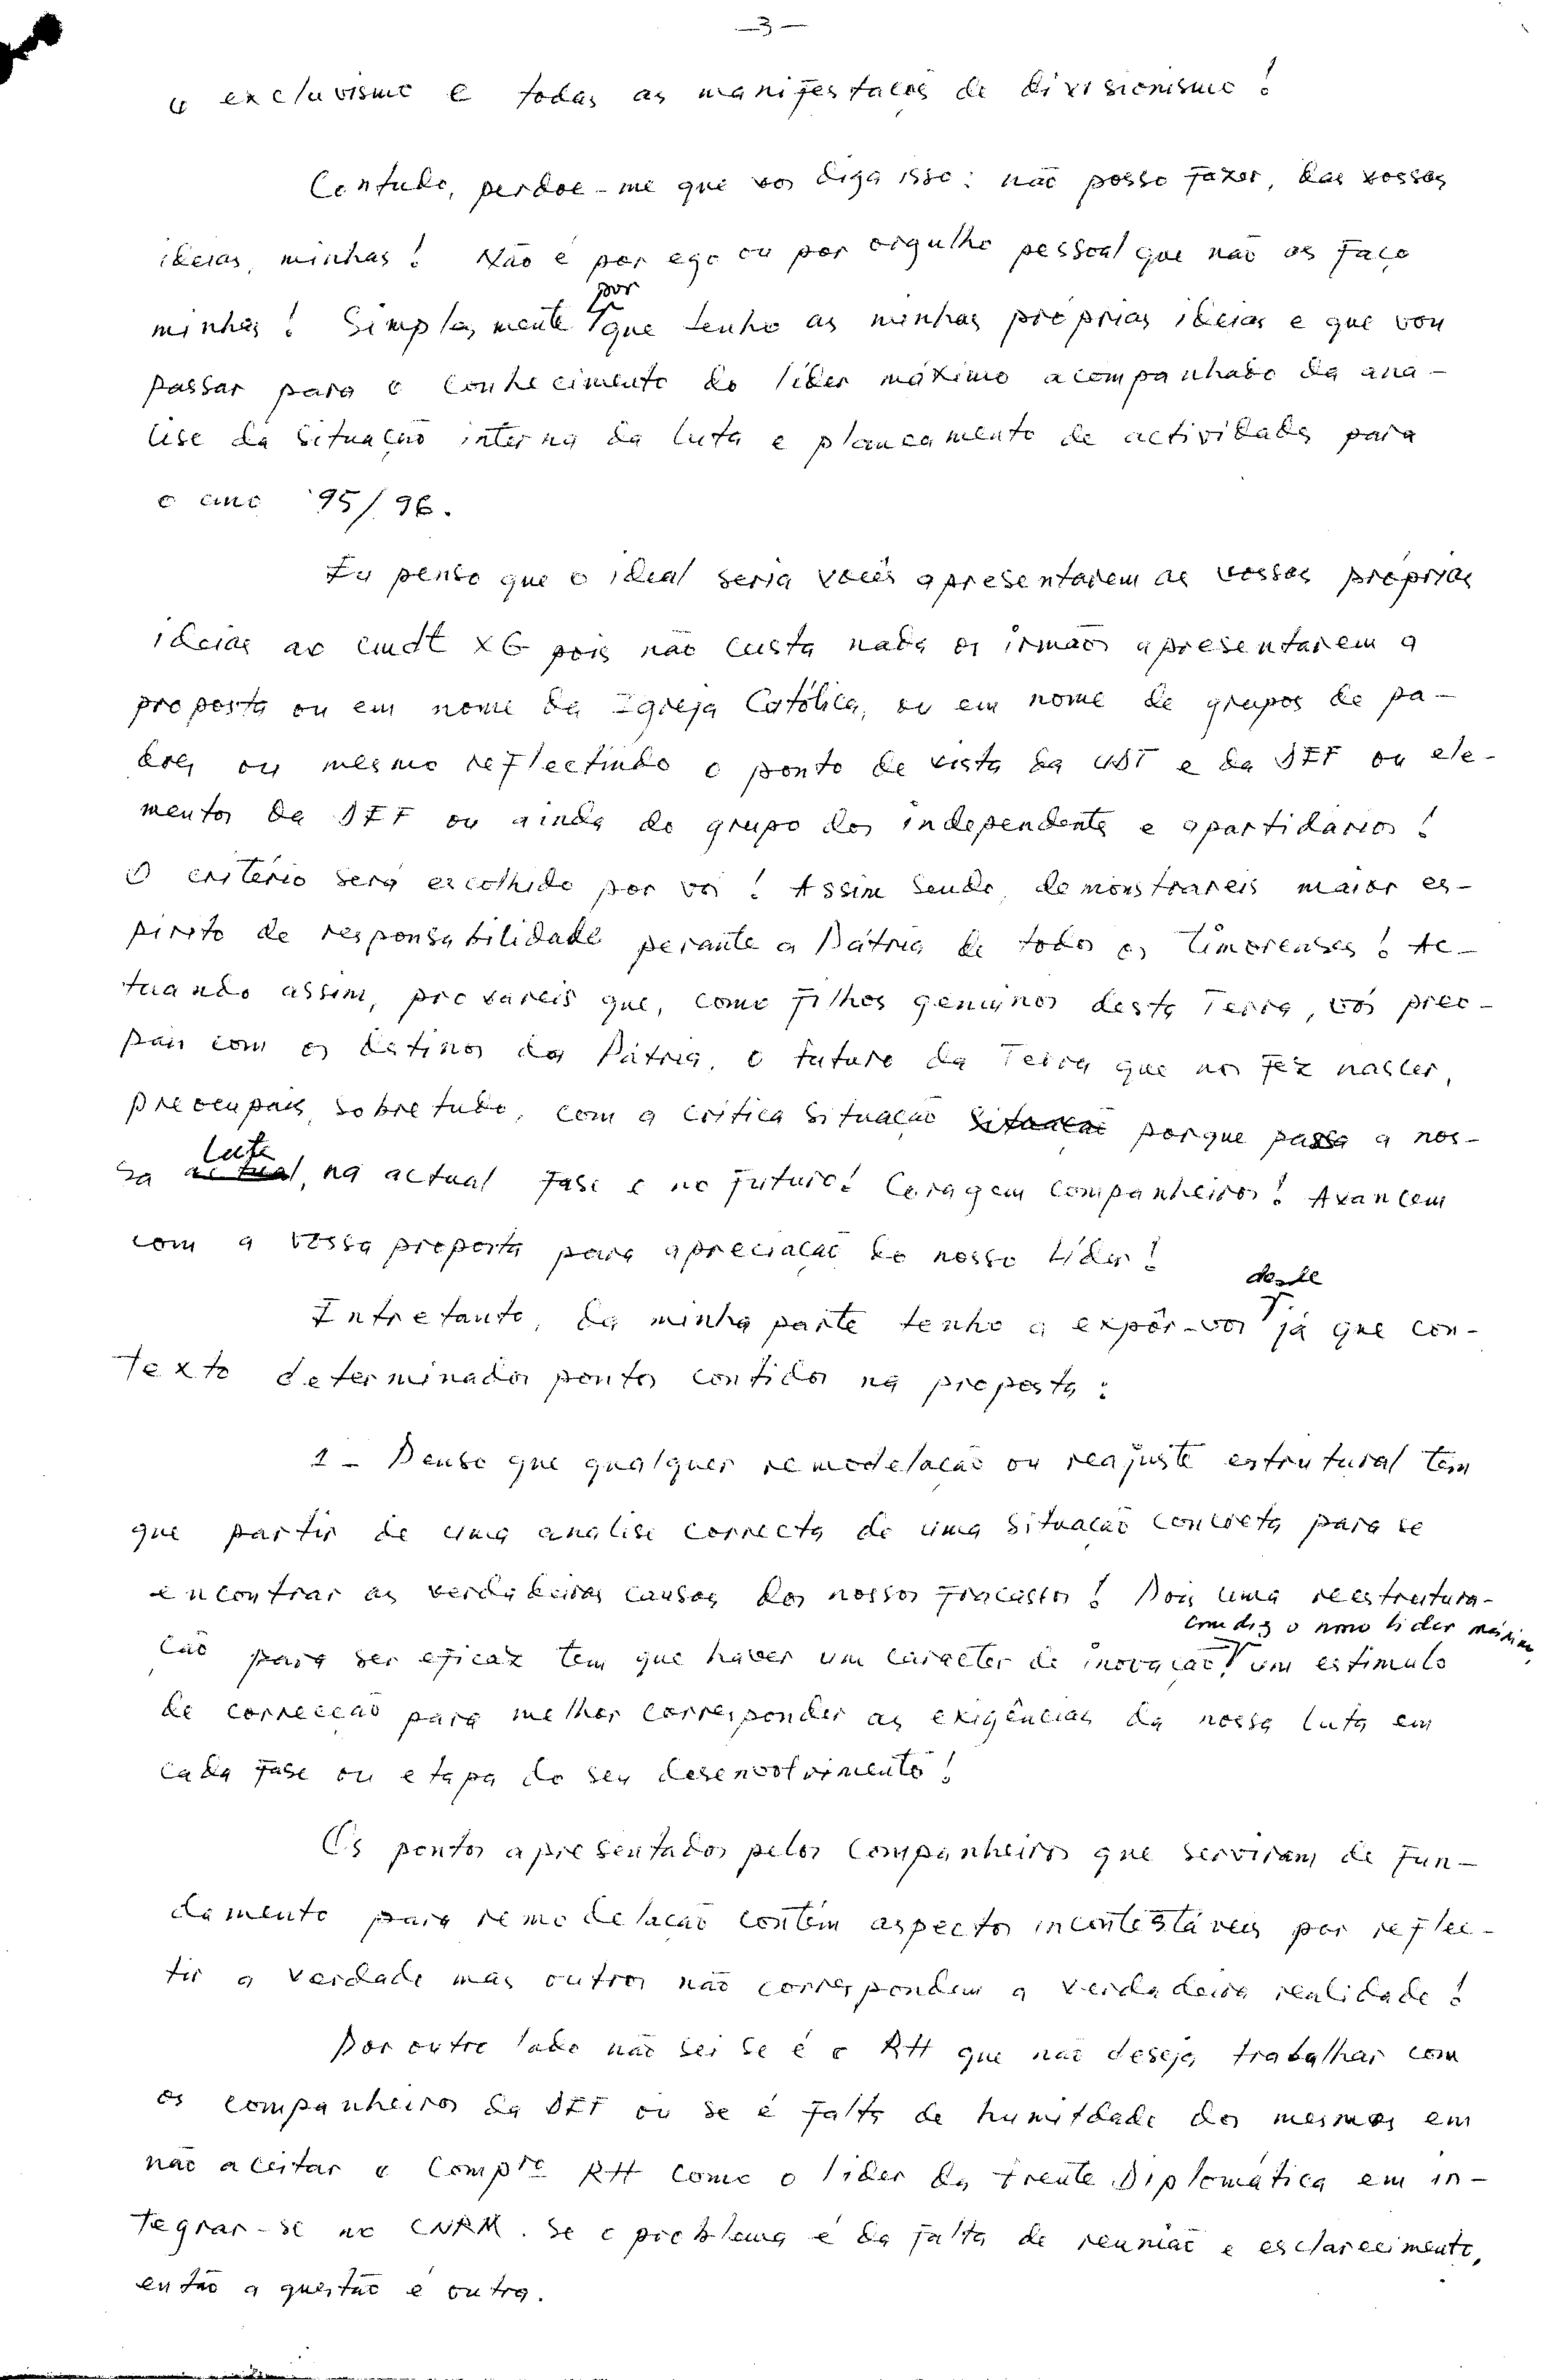 —3—
o excluvismo e todas as manifestacões de divisionismo!
Contudo, perdoe-me que vos diga isso: não posso fazer, das vossas
ideias, minhas! Não é por ego ou por orgulho pessoal que não as faço
minhas! Simplesmente porque tenho as minhas próprias ideias e que vou
passar para o conhecimento do líder máximo acompanhado da aná-
lise da situação interna da luta e planeamento de actividades para
o ano '95/96.
Eu penso que o ideal seria vocês apresentarem as vossas próprias
ideias ao cmdt XG pois não custa nada os irmãos apresentarem a
proposta ou em nome da Igreja Católica, ou em nome de grupos de pa-
dres ou mesmo reflectindo o ponto de vista da UDT e da DFF ou ele-
mentos da DFF ou ainda do grupo dos independentes e apartidários!
O critério será escolhido por vós! Assim sendo, demonstrareis maior es-
pírito de responsabilidade perante a Pátria de todos os Timorenses! Ac-
tuando assim, provareis que, como filhos genuínos desta Terra, vós preo-
pais com os destinos da Pátria, o futuro da Terra que nos fez nascer,
preocupais, sobretudo, com a crítica situação situação porque passa a nos-
sa actual luta, na actual fase e no futuro! Coragem companheiros! Avancem
com a vossa proposta para apreciacão do nosso líder!
Entretanto, da minha parte tenho a expôr-vos desde já que con-
texto determinados pontos contidos na proposta:
1 - Penso que qualquer remodelacão ou reajuste estrutural tem
que partir de uma análise correcta de uma situacão concreta para se
encontrar as verdadeiras causas dos nossos fracassos! Pois uma reestrutura-
cão para ser eficaz tem que haver um carácter de inovacão, como diz o nosso líder máximo, um estímulo
de correccão para melhor corresponder as exigências da nossa luta em
cada fase ou etapa do seu desenvolvimento!
Os pontos apresentados pelos companheiros que serviram de fun-
damento para remodelacão contêm aspectos incontestáveis por reflec-
tir a verdade mas outros não correspondem a verdadeira realidade!
Por outro lado não sei se é o RH que não deseja trabalhar com
os companheiros da DFF ou se é falta de humildade dos mesmos em
não aceitar o Comp.ro RH como o líder da Frente Diplomática em in-
tegrar-se no CNRM. Se o problema é da falta de reunião e esclarecimento,
então a questão é outra.